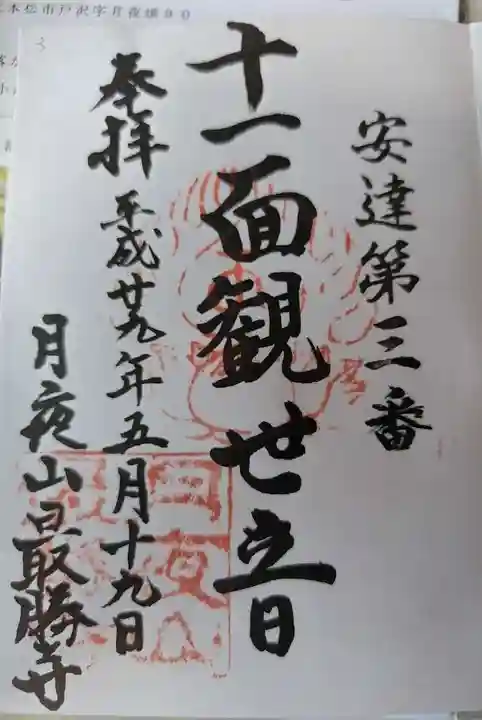 二本松市戸沢字月夜畑90
安達第三番
十一面観世音
奉拝 平成廿九年五月十九日
月夜山最勝寺